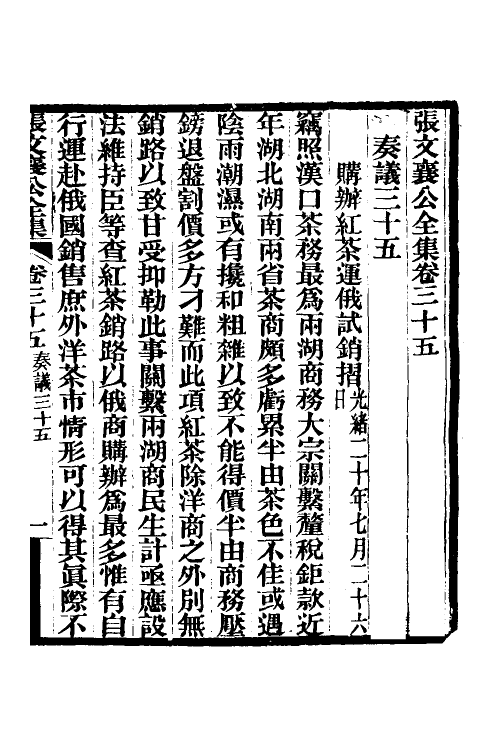 張文襄公全集卷三十五
奏議三十五
購辦紅茶運俄試銷摺光緒二十年七月二十六
日
竊照漢口茶務最爲兩湖商務大宗關繫釐稅鉅款近
年湖北湖南兩省茶商頗多虧累半由茶色不佳或遇
陰雨潮濕或有攙和粗雜以致不能得價半由商務壓
鎊退盤割價多方刁難而此項紅茶除洋商之外別無
銷路以致甘受抑勒此事關繫兩湖商民生計亟應設
法維持臣等查紅茶銷路以俄商購辦爲最多惟有自
行運赴俄國銷售庶外洋茶市情形可以得其眞際不
張文襄公全集 卷三十五 奏議三十五 一